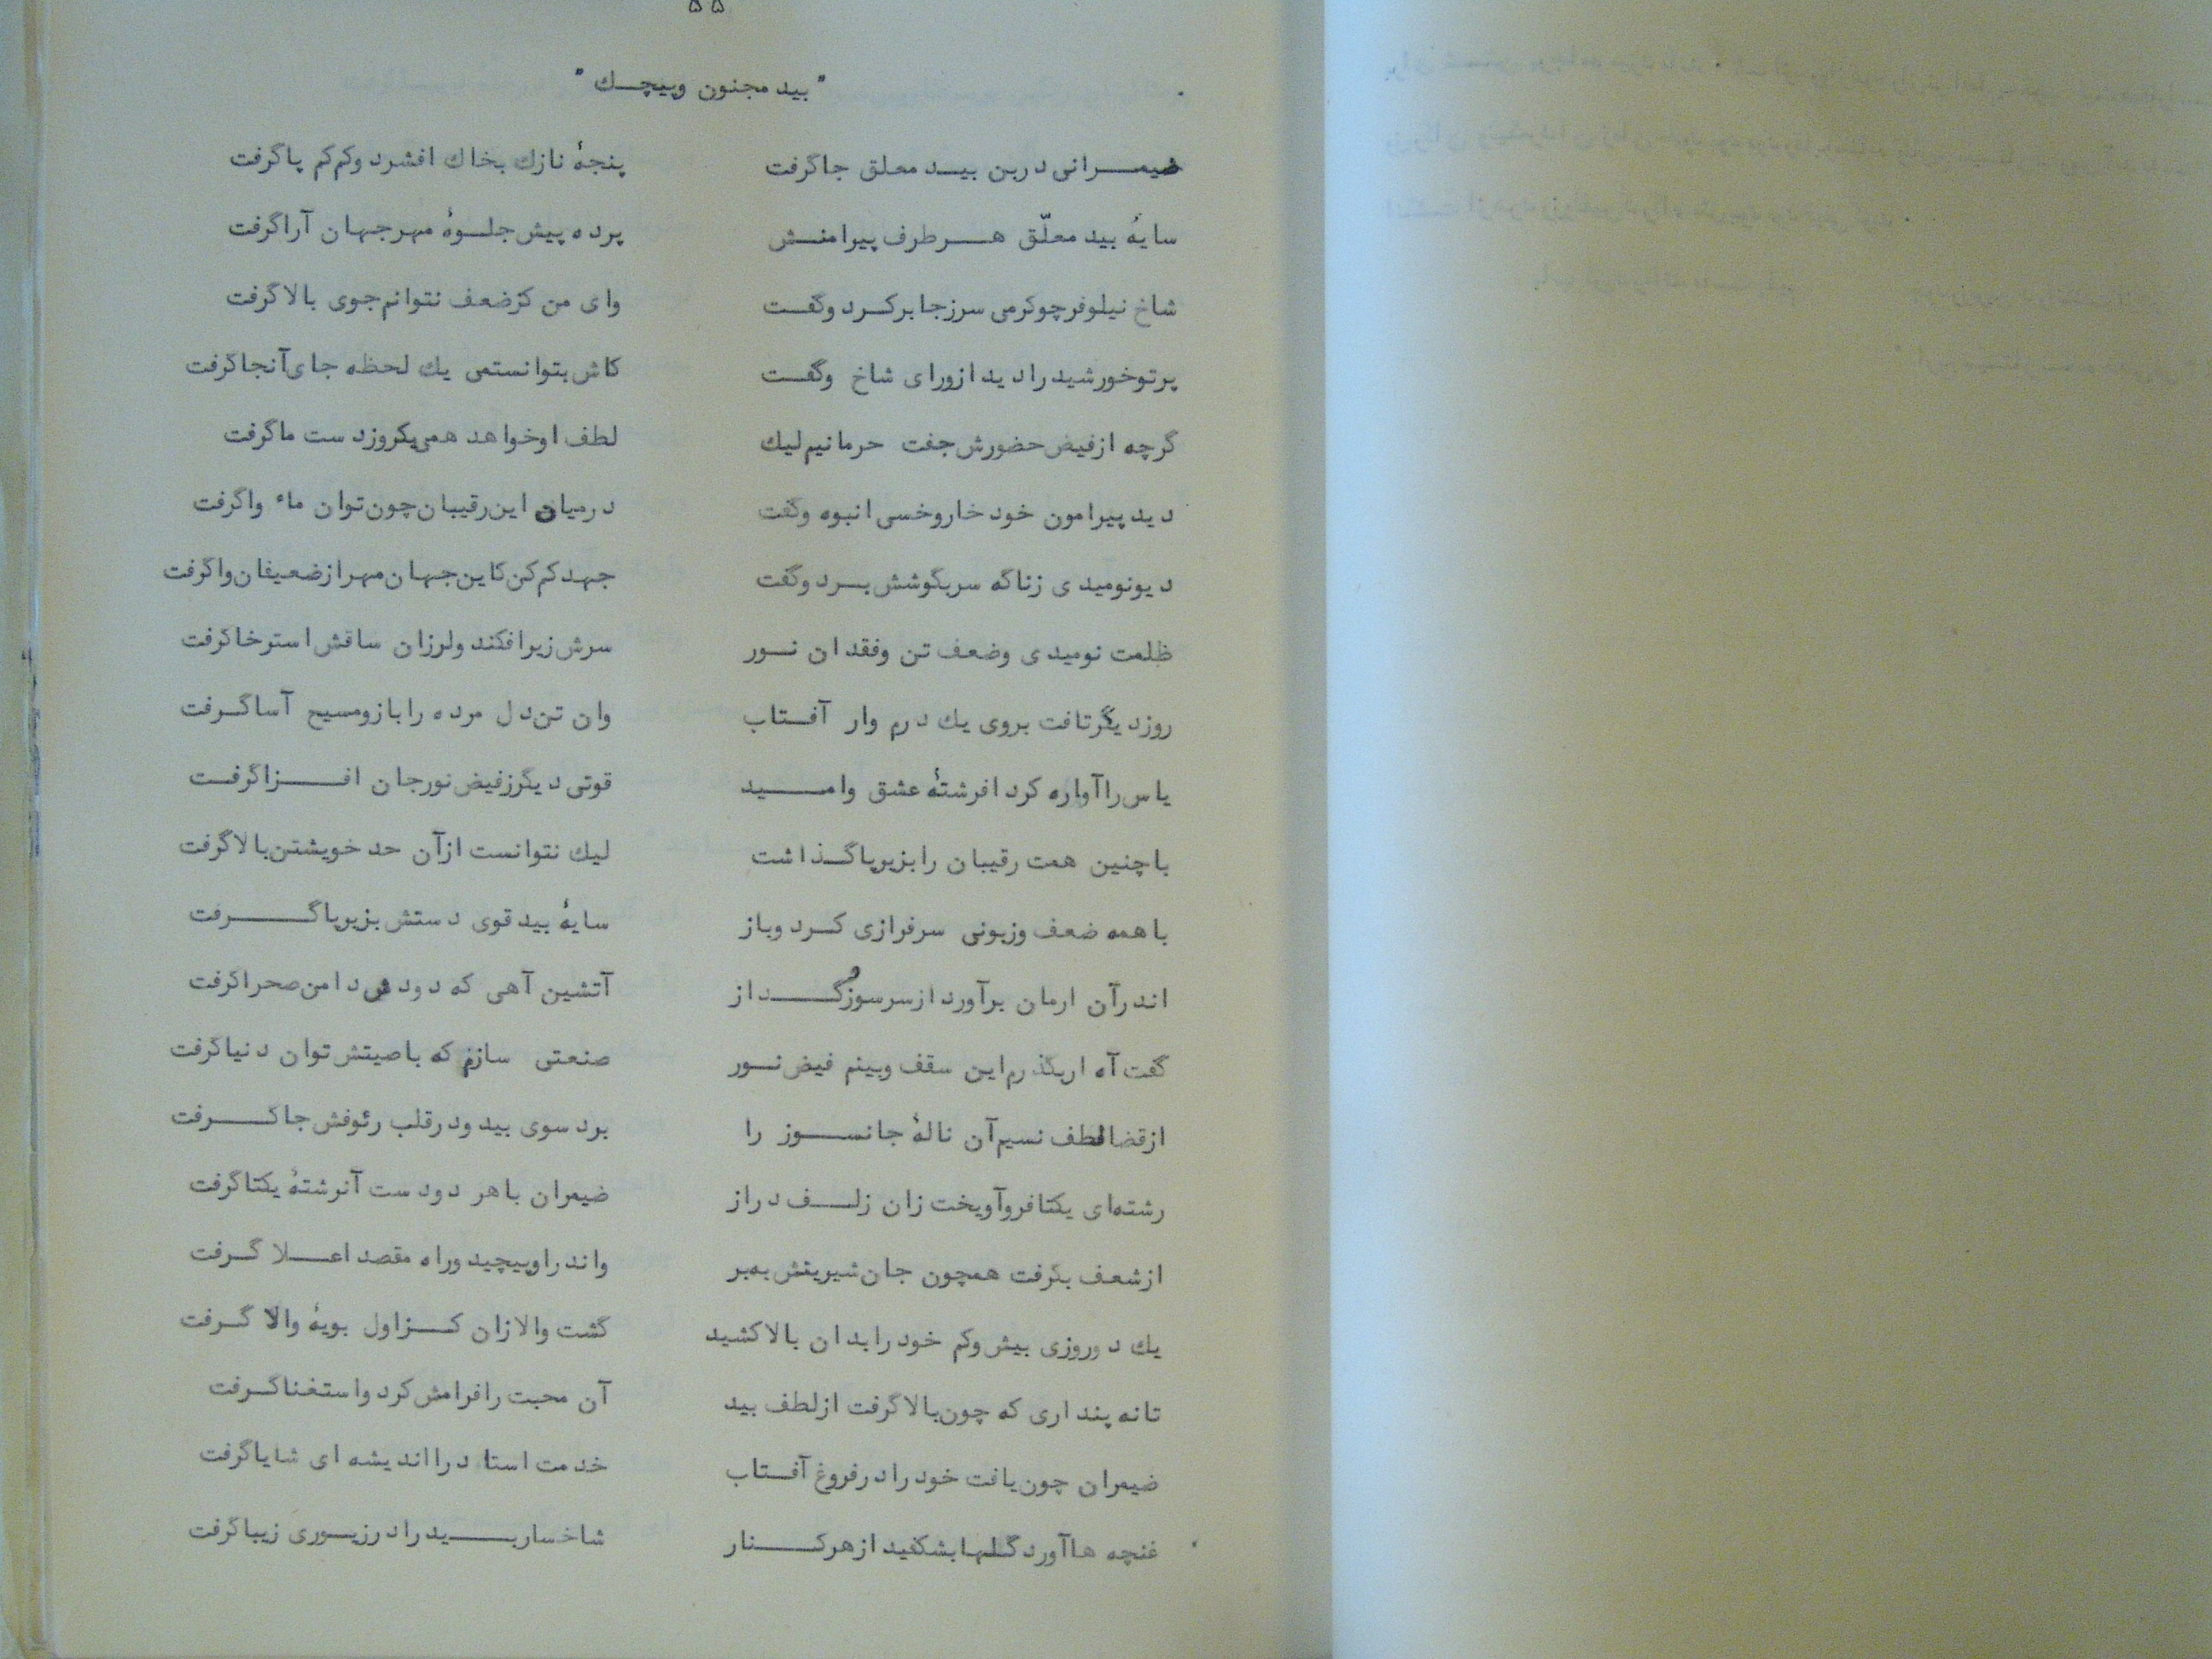 ۵۵
"بید مجنون وپیچك"
ضیمرانی دربن بید معلق جاگرفت پنجهٔ نازك بخاك افشرد وکم‌کم پاگرفت
سایهٔ بید معلّق هرطرف پیرامنش پرده پیش جلوهٔ مهرجهان آراگرفت
شاخ نیلوفرچوکرمی سرزجابرکرد وگفت وای من کزضعف نتوانم جوی بالاگرفت
پرتوخورشید رادید ازورای شاخ وگفت کاش بتوانستمی یك لحظه جای آنجاگرفت
گرچه ازفیض حضورش جفت حرمانیم لیك لطف اوخواهد همی یکروزدست ماگرفت
دید پیرامون خود خاروخسی انبوه وگفت درمیان این رقیبان چون توان ماء واگرفت
دیونومیدی زناگه سربگوشش برد وگفت جهدکم کن کاین جهان مهرازضعیفان واگرفت
ظلمت نومیدی وضعف تن وفقدان نور سرش زیرافکند ولرزان ساقش استرخاگرفت
روزدیگرتافت بروی یك درم وار آفتاب وان تن دل مرده رابازومسیح آساگرفت
یاس راآواره کرد افرشتهٔ عشق وامید قوتی دیگرزفیض نورجان افزاگرفت
باچنین همت رقیبان رابزیرپاگذاشت لیك نتوانست ازآن حد خویشتن بالاگرفت
باهمه ضعف وزبونی سرفرازی کرد وباز سایهٔ بید قوی دستش بزیرپاگرفت
اندرآن ارمان برآورد ازسرسوزوگداز آتشین آهی که دودش دامن صحراگرفت
گفت آه اربگذرم این سقف وبینم فیض نور صنعتی سازم که باصیتش توان دنیاگرفت
ازقضالطف نسیم آن نالهٔ جانسوز را برد سوی بید ودرقلب رئوفش جاگرفت
رشته‌ای یکتافروآویخت زان زلف دراز ضیمران باهر دودست آنرشتهٔ یکتاگرفت
ازشعف بگرفت همچون جان شیرینش به‌بر واندراوپیچید وراه مقصد اعلا گرفت
یك دوروزی بیش وکم خود رابدان بالاکشید گشت والازان کزاول بویهٔ والا گرفت
تانه پنداری که چون بالاگرفت ازلطف بید آن محبت رافرامش کرد واستغناگرفت
ضیمران چون یافت خود رادرفروغ آفتاب خدمت استاد رااندیشه ای شایاگرفت
غنچه هاآورد گلهابشکفید ازهرکنار شاخساربید رادرزیوری زیباگرفت